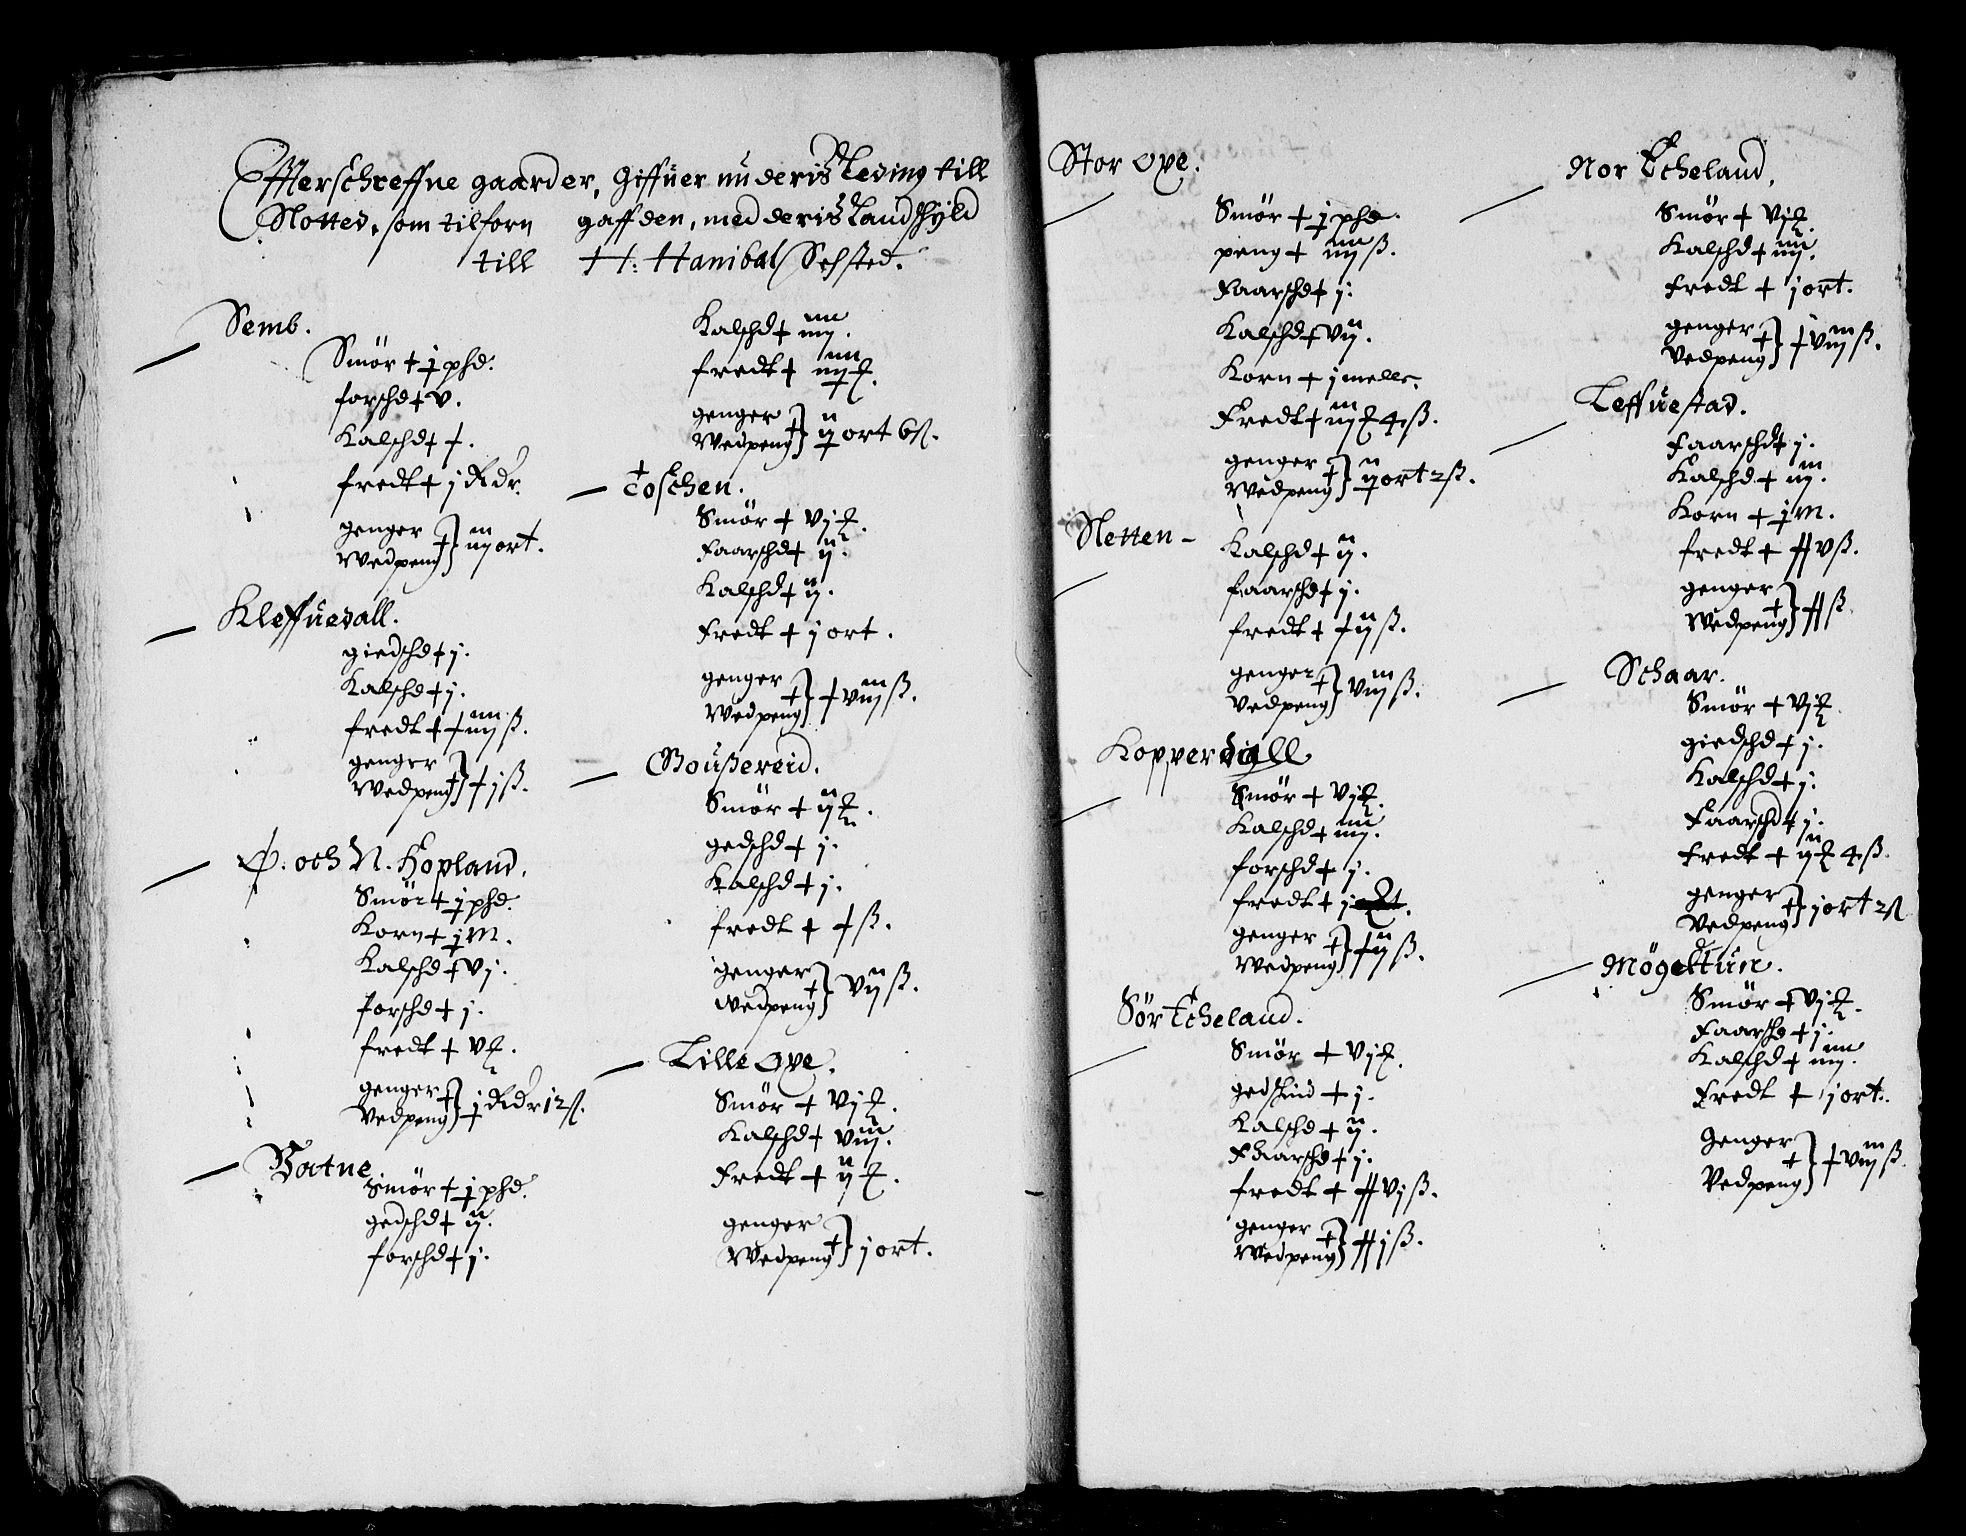 Effterschreffne gaarder, Giffuer nu deris Leding till
Slotted, som tilforn gaff den, med deris Landschyld
till H: Hanibal Sehsted.
Semb.
Smör + j phd.
forschd + v.
Kalschd + x.
fredt + j Rdr.
genger
Wedpeng } + iij ort.
Kleffuedall.
giedschd + j.
Kalschd + j.
fredt + x iiij ß.
genger
Wedpeng } + x j ß.
Ø. och N. Hopland.
Smör + j phd.
Korn + j M.
Kalschd + vj.
forschd + j.
fredt + v ℔.
genger
Vedpeng } + j Rdr 12 ß.
Vatne
Smör + j phd.
gedschd + ij.
forschd + j.
Kalschd + iiij.
fredt + iiij ℔.
genger
Wedpeng } + ij ort 6 ß.
Toschen.
Smör + vj ℔.
Faarschd + ij.
Kalschd + ij.
Fredt + j ort.
genger
Wedpeng } + x viij ß.
Goußereid.
Smör + ij ℔.
gedschd + j.
Kalschd + j.
fredt + x ß.
genger
Wedpeng } + vij ß.
Lille Oxe.
Smör + vj ℔.
Kalschd + viij.
Fredt + ij ℔.
genger
Wedpeng } + j ort.
Stor Oxe.
Smör + j phd.
peng + iiij ß.
Faarschd + j.
Kalschd + vij.
Korn + j meller.
Fredt + iij ℔ 4 ß.
genger
Wedpeng } + ij ort 2 ß.
Sletten -
Kalschd + ij.
faarschd + j.
fredt + x ij ß.
genger
Vedpeng } + viij ß.
Kopperdall
Smör + vj ℔.
Kalschd + iiij.
forschd + j.
fredt + j ort.
genger
Wedpeng } + x ij ß.
Sör Tcheland.
Smör + vj ℔.
gedschind + j.
Kalschd + ij.
Faarschd + j.
fredt + xx vj ß.
genger
Wedpeng } + xx j ß.
Nor Tcheland.
Smör + vj ℔.
Kalschd + iiij.
Fredt + j ort.
genger
Vedpeng } + x viij ß.
Leffuestad.
Faarschd + j.
Kalschd + iij.
Korn + j M.
fredt + xx v ß.
genger
Wedpeng } + xx ß.
Schaar.
Smör + vj ℔.
giedschd + j.
Kalschd + j.
Faarschd + j.
Fredt + ij ℔ 4 ß.
genger
Vedpeng } + j ort 2 ß
Mögeltun.
Smör + vj ℔.
Faarschd + j.
Kalschd + iiij.
Fredt + j ort.
Genger
Vedpeng } + x viij ß.